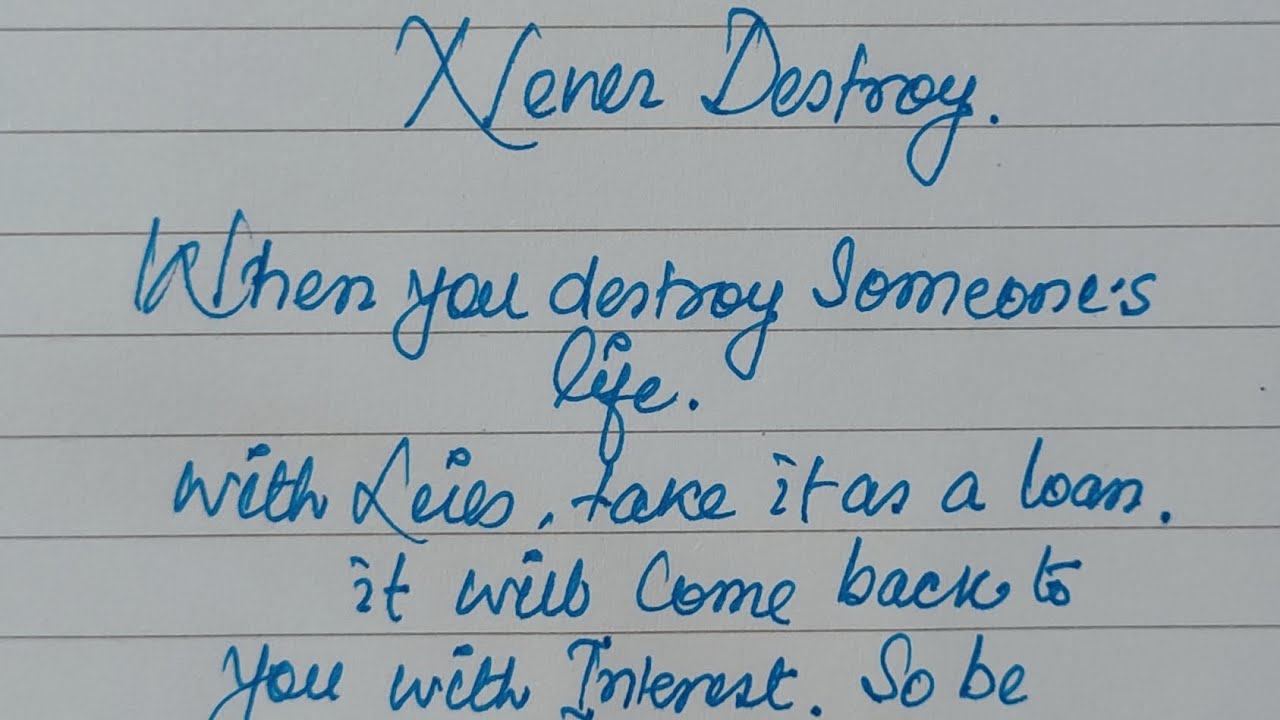 Never Destroy.
When you destroy Someone's
life.
with Leies, take it as a loan.
it will Come back to
you with Interest. So be